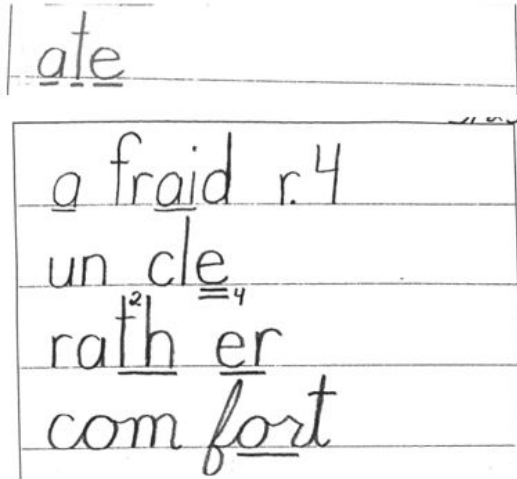 ate
a fraid r. 4
un cle 4
ra th 2 er
com fort